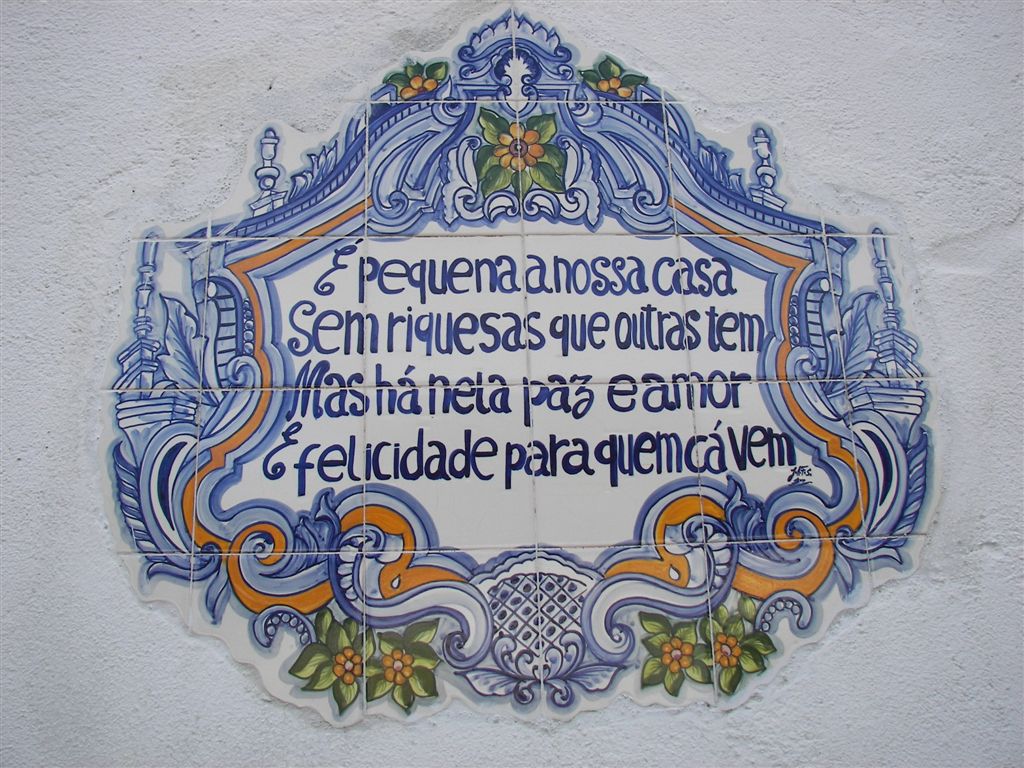 É pequena a nossa casa
Sem riquesas que outras tem
Mas há nela paz e amor
E felicidade para quem cá vem